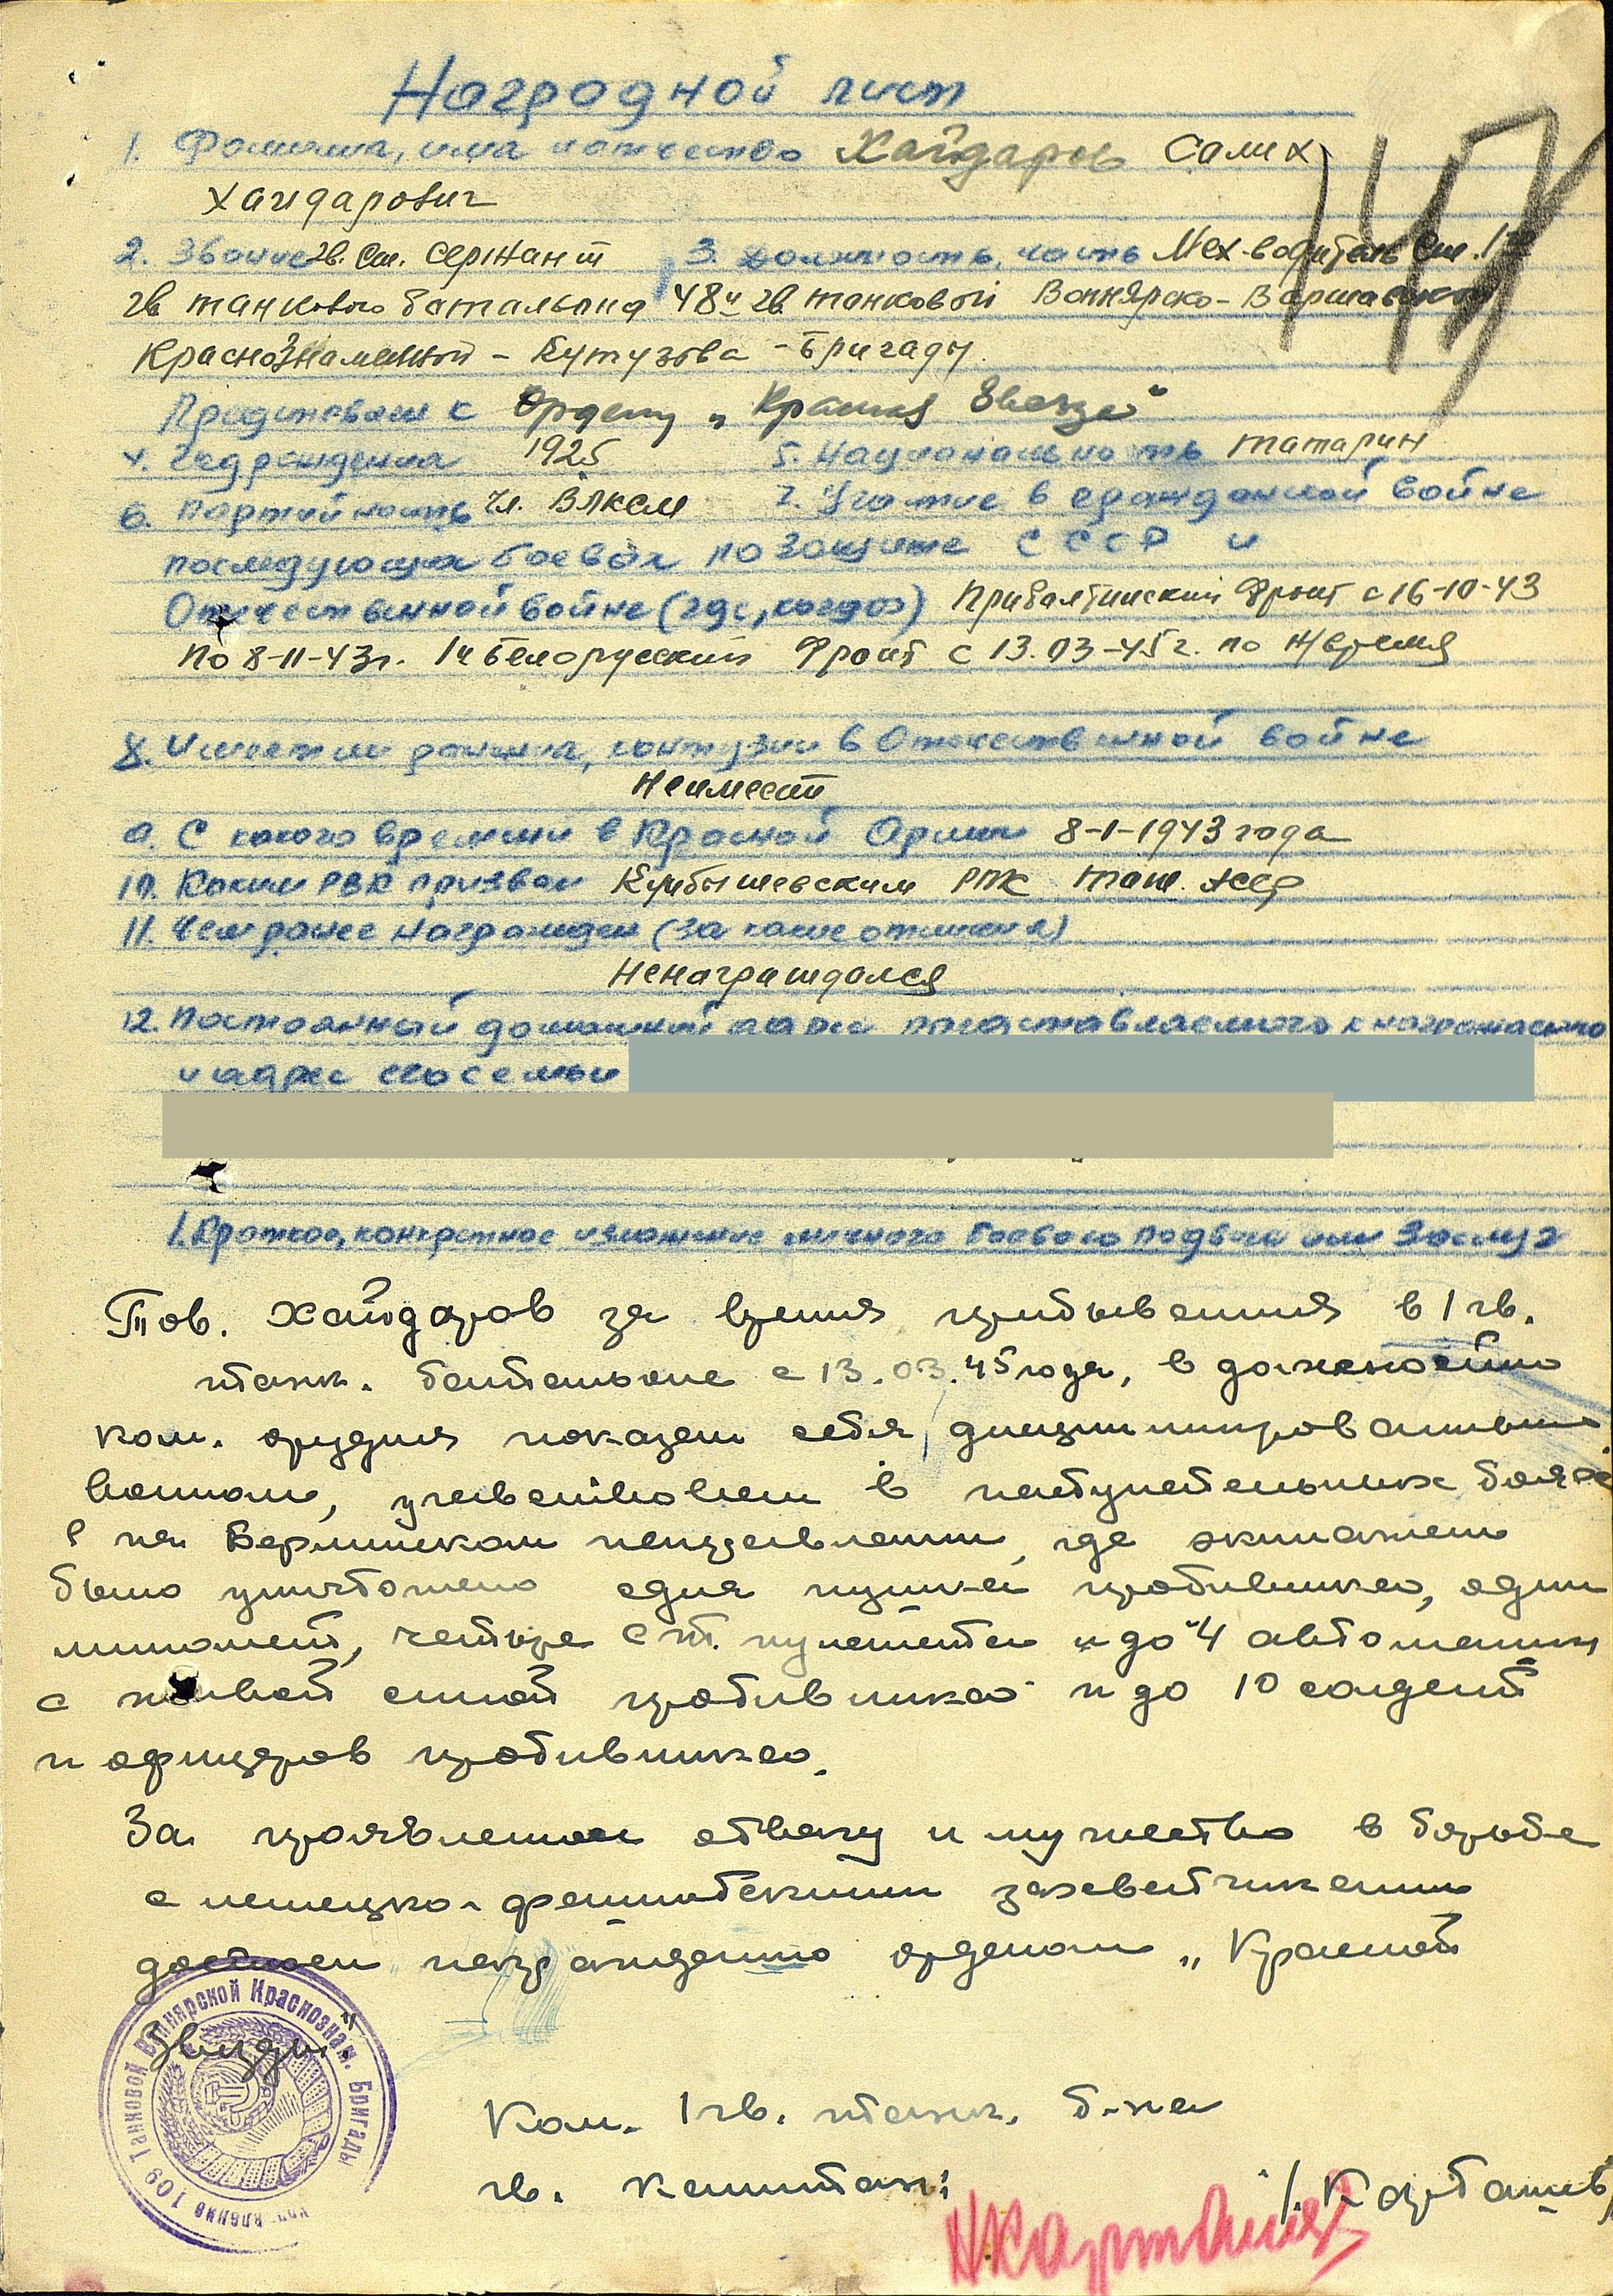 Наградной лист
1. Фамилия, имя и отчество Хайдаров Салих
Хайдарович
2. Звание гв. ст. сержант 3. Должность, часть Мех-водитель ст. 1го
гв танкового батальона 48й гв танковой Вапнярско-Варшавской
Краснознаменной - Кутузова - Бригады
Представлен к Ордену „Красная Звезда"
4. Год рождения 1925 5. Национальность татарин
6. Партийность чл. ВЛКСМ 7. Участие в гражданской войне
последующих боевых по защите СССР и
Отечественной войне (где, когда) Прибалтийский Фронт с 16-10-43
по 8-11-43г. 1й Белорусский Фронт с 13.03-45г. по н/время
8. Имеет ли ранения, контузии в Отечественной войне
Неимеет
9. С какого времени в Красной Армии 8-1-1943 года
10. Каким РВК призван Куйбышевским РВК тат. АССР
11. Чем ранее награжден (за какие отличия)
Ненаграждался
12. Постоянный домашний адрес представляемого к награждению
и адрес его семьи
1. Краткое, конкретное изложение личного боевого подвига или заслуг
Тов. Хайдаров за время прибывания в 1 гв.
танк. батальоне с 13.03.45 года, в должности
ком. орудия показал себя дисциплинированным
воином, участвовал в наступательных боях
на Берлинском направлении, где экипажем
было уничтожено одна пушка противника, один
миномет, четыре ст. пулемета и до 4 автомашин
с живой силой противника и до 10 солдат
и офицеров противника.
За проявленное отвагу и мужество в борьбе
с немецко-фашистскими захватчиками
достоен награждению орденом „Красной
Звезды"
Управление 109 Танковой Вапнярской Краснознам. Бригады
Ком. 1 гв. танк. б-на
гв. капитан: /Карташев/